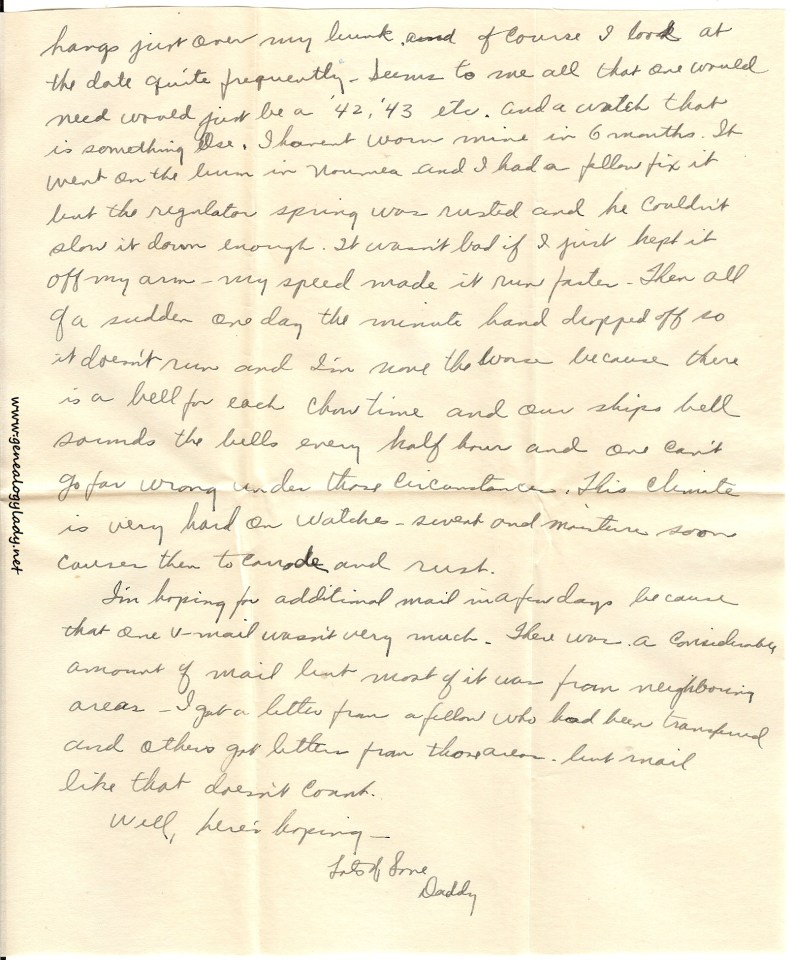 hangs just over my bunk and of course I look at
the date quite frequently - Seems to me all that one would
need would just be a '42, '43 etc. And a watch that
is something else. I havent worn mine in 6 months. It
went on the bum in Noumea and I had a fellow fix it
but the regulator spring was rusted and he couldn't
slow it down enough. It wasn't bad if I just kept it
off my arm - my speed made it run faster. Then all
of a sudden one day the minute hand dropped off so
it doesn't run and I'm none the worse because there
is a bell for each chow time and our ships bell
sounds the bells every half hour and one can't
go far wrong under those circumstances. This climate
is very hard on watches - sweat and moisture soon
causes them to corrode and rust.
I'm hoping for additional mail in a few days because
that one V-mail wasn't very much. There was a considerable
amount of mail but most of it was from neighboring
areas - I got a letter from a fellow who had been transferred
and others got letters from those areas. but mail
like that doesn't count.
Well, here's hoping -
Lots of Love
Daddy
www.genealogylady.net